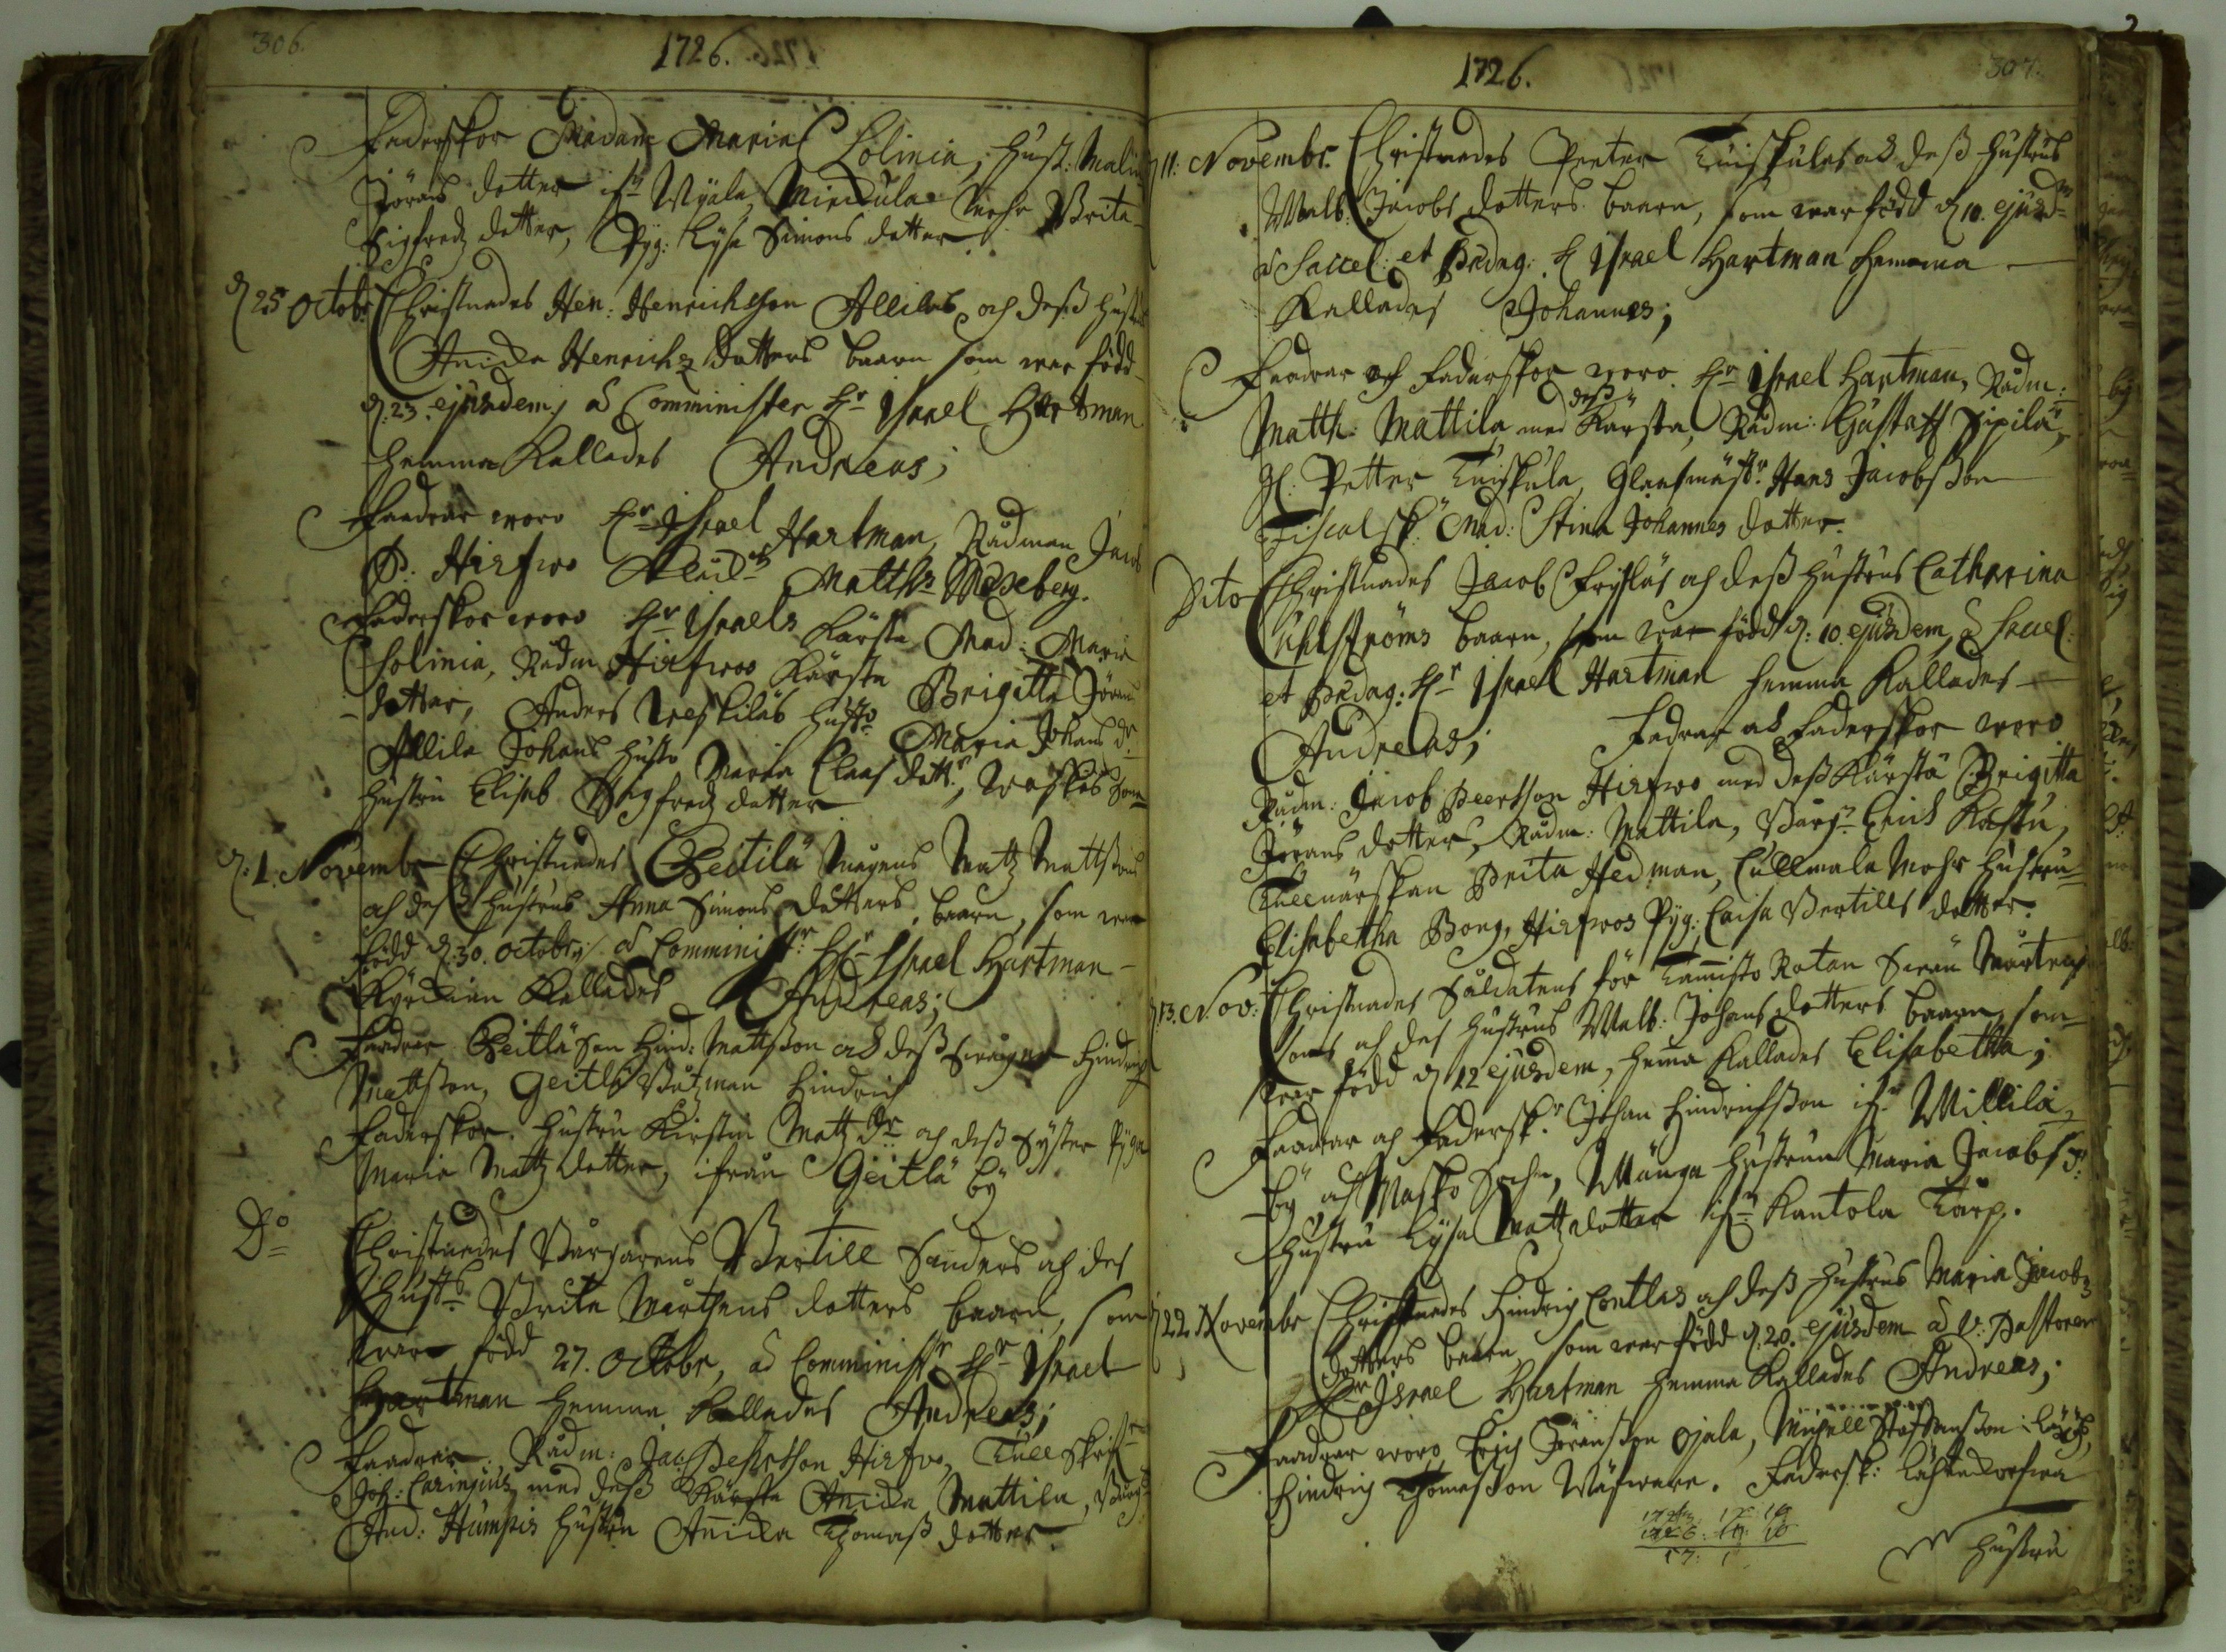 306.
1726.
Faderskor Madame Maria Colinia, Hust: Malin
Jörans dotter ifr: Wijala, Minckula Mohr Brita
Sigfredz dotter, Pijg: Lysa Simons dotter.
d 25 Octobr. Christnades Hen: Henrichsson Allilas och dess hustrus
Annicka Henrichz dotters baarn som war född
d. 23. ejusdem, aff Comminister Hr Israel Hartman
hemma Kallades Andreas;
Faadrar woro Hr Israel Hartman, Rådman Jacob
P. Hirfwo Matths Moseberg.
Faderskor woro Hr Israels Kärsta Mad: Maria
Colinia, Rådm Hirfwos Kärsta Brigitta Jörans
dotter, Anders hust: Maria Johans dr
Allila Johans hustr Maria Claas dott:,
hustru Elisab Sigfredz dotter
d. 1. Novembr Christnades Geitilä Mågens Matz Mattssons
och dess hustrus Anna Simons dotters baarn, som war
född d. 30. Octobr, aff Comministr: Hr Israel Hartman
Kyrckian Kallades Andreas;
Faadrar Geitlä Son Hind: Mattsson och dess swåger Hindrich
Mattsson, Geitlä Hindrich
Faderskor. Hustru Kirstin Matz Dr och dess Syster Pijga
Maria Matz dotter, ifrån Geitlä by
Do Christnades Borgarens Bertill Sanders och des
Hust: Brita Mårthens dotters baarn, som
war född 27. Octobr, aff Comministr Hr Israel
Hartman hemma Kallades Andreas;
Faadrar: Rådm: Jac: Pehrsson Hirfwo, Tullskrif:
Joh: Carinjus med dess Kärsta Annicka Mattila, Borg:
And: Humpis hustru Annicka Thomass dotter.
1726.
307.
d 11. Novembr. Christnades Peeter Tuiskulas och dess hustrus
Walb: Jacobs dotters baarn, som war född d 10. ejusd:
aff Sacel: et Pædag: H Israel Hartman hemma
Kallades Johannes;
Faadrar och Faderskor woro Hr Israel Hartman, Rådm:
Matth: Mattila med dess Kärsta, Rådm: Gustaff Sipilä,
Gl. Petter Tuiskula, Glaasmäst: Hans Jacobsson
Fiscalsk: Mad: Stina Johannes dotter.
Dito Christnades Jacob och dess hustrus Catharina
Uhlströms baarn, som war född d. 10. ejusdem, aff Sacel:
et Pædag: Hr Israel Hartman hemma Kallades
Andreas; Fadrar och Faderskor woro
Rådm: Jacob Peersson Hirfwo med dess Kärsta Brigitta
Jörans dotter, Rådm: Mattila, Borg: Erick Kastu,
Tullnärskan Brita Hedman, Cullmala Mohr hustru
Elisabetha Bong, Hirfwos Pijg: Caisa Bertills dotter.
d 13. Nov: Christnades Soldatens för Tammisto Rotan Swen Mårtens
sons och des hustrus Walb: Johans dotters baarn som
war född d 12 ejusdem, hema Kallades Elisabetha;
Faadrar och Fadersk: Johan Hindrichsson ifr: Willilä
by och Masko Sochn, Wånga hustrun Maria Jacobs dr
hustru Lysa Matz dotter ifr: Kantola Torp.
d 22. Novembr Christnades Hindrich Contlas och dess hustrus Maria Jacobz
dotters baarn som war född d. 20. ejusdem aff V: Pastoren
Hr Israel Hartman hemma Kallades Andreas;
Faadrar woro Erich Jöransson Ojala, Michell Staffansson
Hindrich Thomasson Wäfware. Fadersk:
hustru